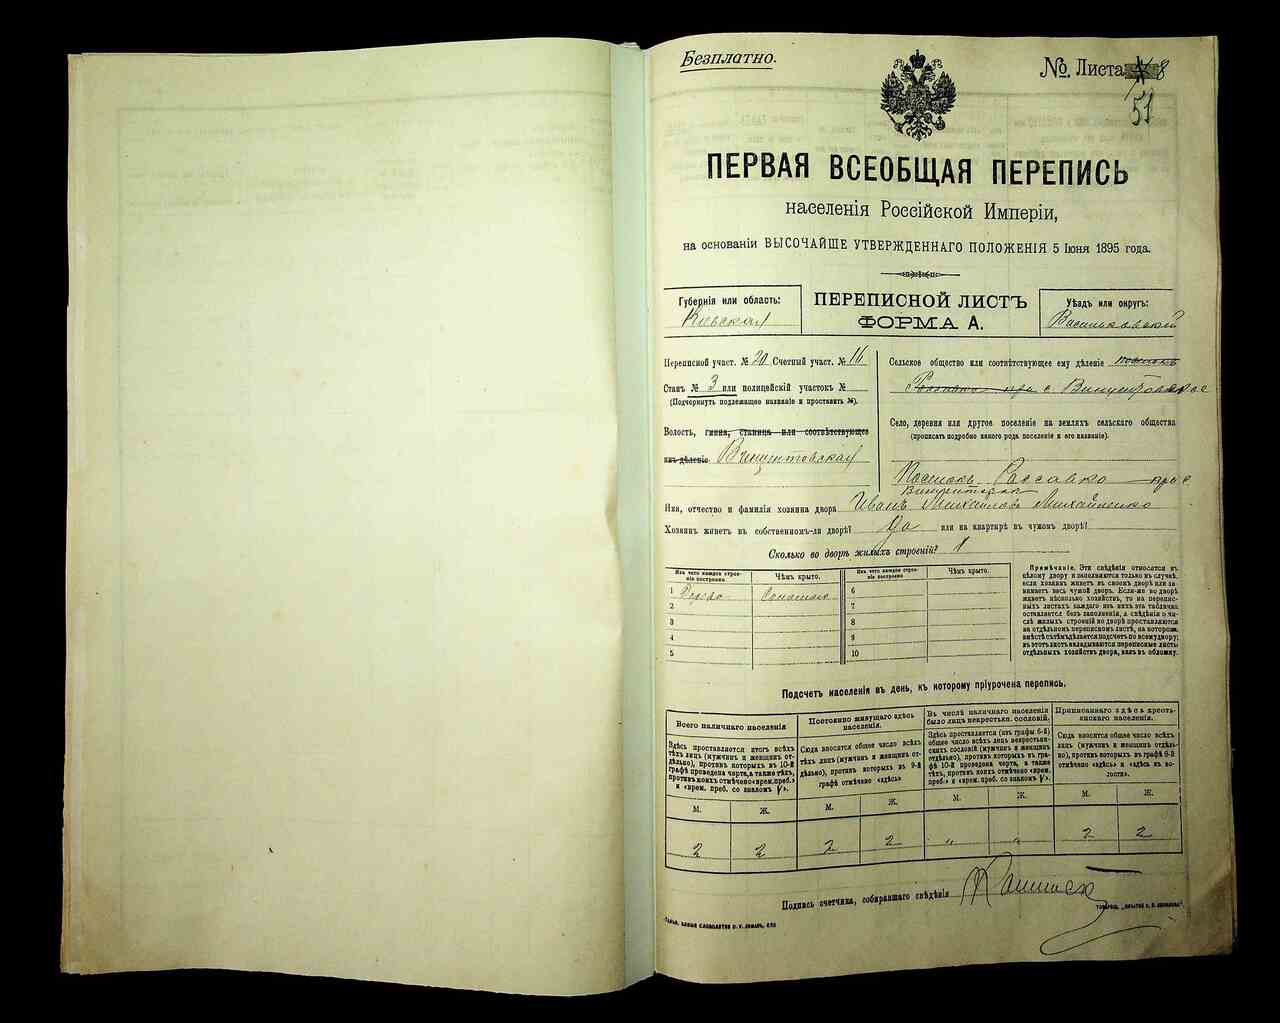 Безплатно.
№ Листа 8
51
ПЕРВАЯ ВСЕОБЩАЯ ПЕРЕПИСЬ
населенія Россійской Имперіи,
на основаніи ВЫСОЧАЙШЕ УТВЕРЖДЕННАГО ПОЛОЖЕНІЯ 5 Іюня 1895 года.
Губернія или область:
Кіевская
ПЕРЕПИСНОЙ ЛИСТЪ
ФОРМА А.
Уѣздъ или округъ:
Васильковскій
Переписной участ. № 20 Счетный участ. № 16
Станъ № 3 или полицейскій участокъ №
(Подчеркнуть подлежащее названіе и проставить №).
Волость, гмина, станица или соотвѣтствующее
имъ дѣленіе Винцентовская
Сельское общество или соотвѣтствующее ему дѣленіе
Село, деревня или другое поселеніе на земляхъ сельскаго общества
(прописать подробно какого рода поселеніе и его названіе).
Поселокъ Россавка при с
Имя, отчество и фамилія хозяина двора Иванъ Михайловъ Михайленко
Хозяинъ живетъ въ собственномъ-ли дворѣ? Да или на квартирѣ въ чужомъ дворѣ?
Сколько во дворѣ жилыхъ строеній? 1
Изъ чего каждое строеніе построено
Чѣмъ крыто.
Изъ чего каждое строеніе построено
Чѣмъ крыто.
1 Дерево Соломою 6
2 7
3 8
4 9
5 10
Примѣчаніе. Эти свѣдѣнія относятся къ
цѣлому двору и заполняются только въ случаѣ,
если хозяинъ живетъ въ своемъ дворѣ или занимаетъ
весь чужой дворъ. Если-же во дворѣ
живетъ нѣсколько хозяйствъ, то на переписныхъ
листахъ каждаго изъ нихъ эта табличка
оставляется безъ заполненія, а свѣдѣнія о числѣ
жилыхъ строеній во дворѣ проставляются
на отдѣльномъ переписномъ листѣ, на которомъ
вмѣстѣ съ тѣмъ дѣлается подсчетъ по всему двору;
въ этотъ листъ вкладываются переписные листы
отдѣльныхъ хозяйствъ двора, какъ въ обложку.
Подсчетъ населенія въ день, къ которому пріурочена перепись.
Всего наличнаго населенія
Здѣсь проставляется итогъ всѣхъ
тѣхъ лицъ (мужчинъ и женщинъ отдѣльно),
противъ которыхъ въ 10-й
графѣ проведена черта, а также тѣхъ,
противъ коихъ отмѣчено «врем. преб.»
и «врем. преб. со знакомъ V».
Постоянно живущаго здѣсь
населенія.
Сюда вносится общее число всѣхъ
тѣхъ лицъ (мужчинъ и женщинъ отдѣльно),
противъ которыхъ въ 9-й
графѣ отмѣчено «здѣсь»
Въ числѣ наличнаго населенія
было лицъ некрестьян. сословій.
Здѣсь проставляется (изъ графы 6-й)
общее число всѣхъ лицъ некрестьянскихъ
сословій (мужчинъ и женщинъ
отдѣльно), противъ которыхъ въ графѣ
10-й проведена черта, а также
тѣхъ, противъ коихъ отмѣчено «врем.
преб.» и «врем. преб. со знакомъ V».
Приписаннаго здѣсь крестьянскаго
населенія.
Сюда вносится общее число всѣхъ
лицъ (мужчинъ и женщинъ отдѣльно),
противъ которыхъ въ графѣ 8-й
отмѣчено «здѣсь» и «здѣсь къ волости».
М. Ж. М. Ж. М. Ж. М. Ж.
2 2 2 2 " " 2 2
Подпись счетчика, собиравшаго свѣдѣнія